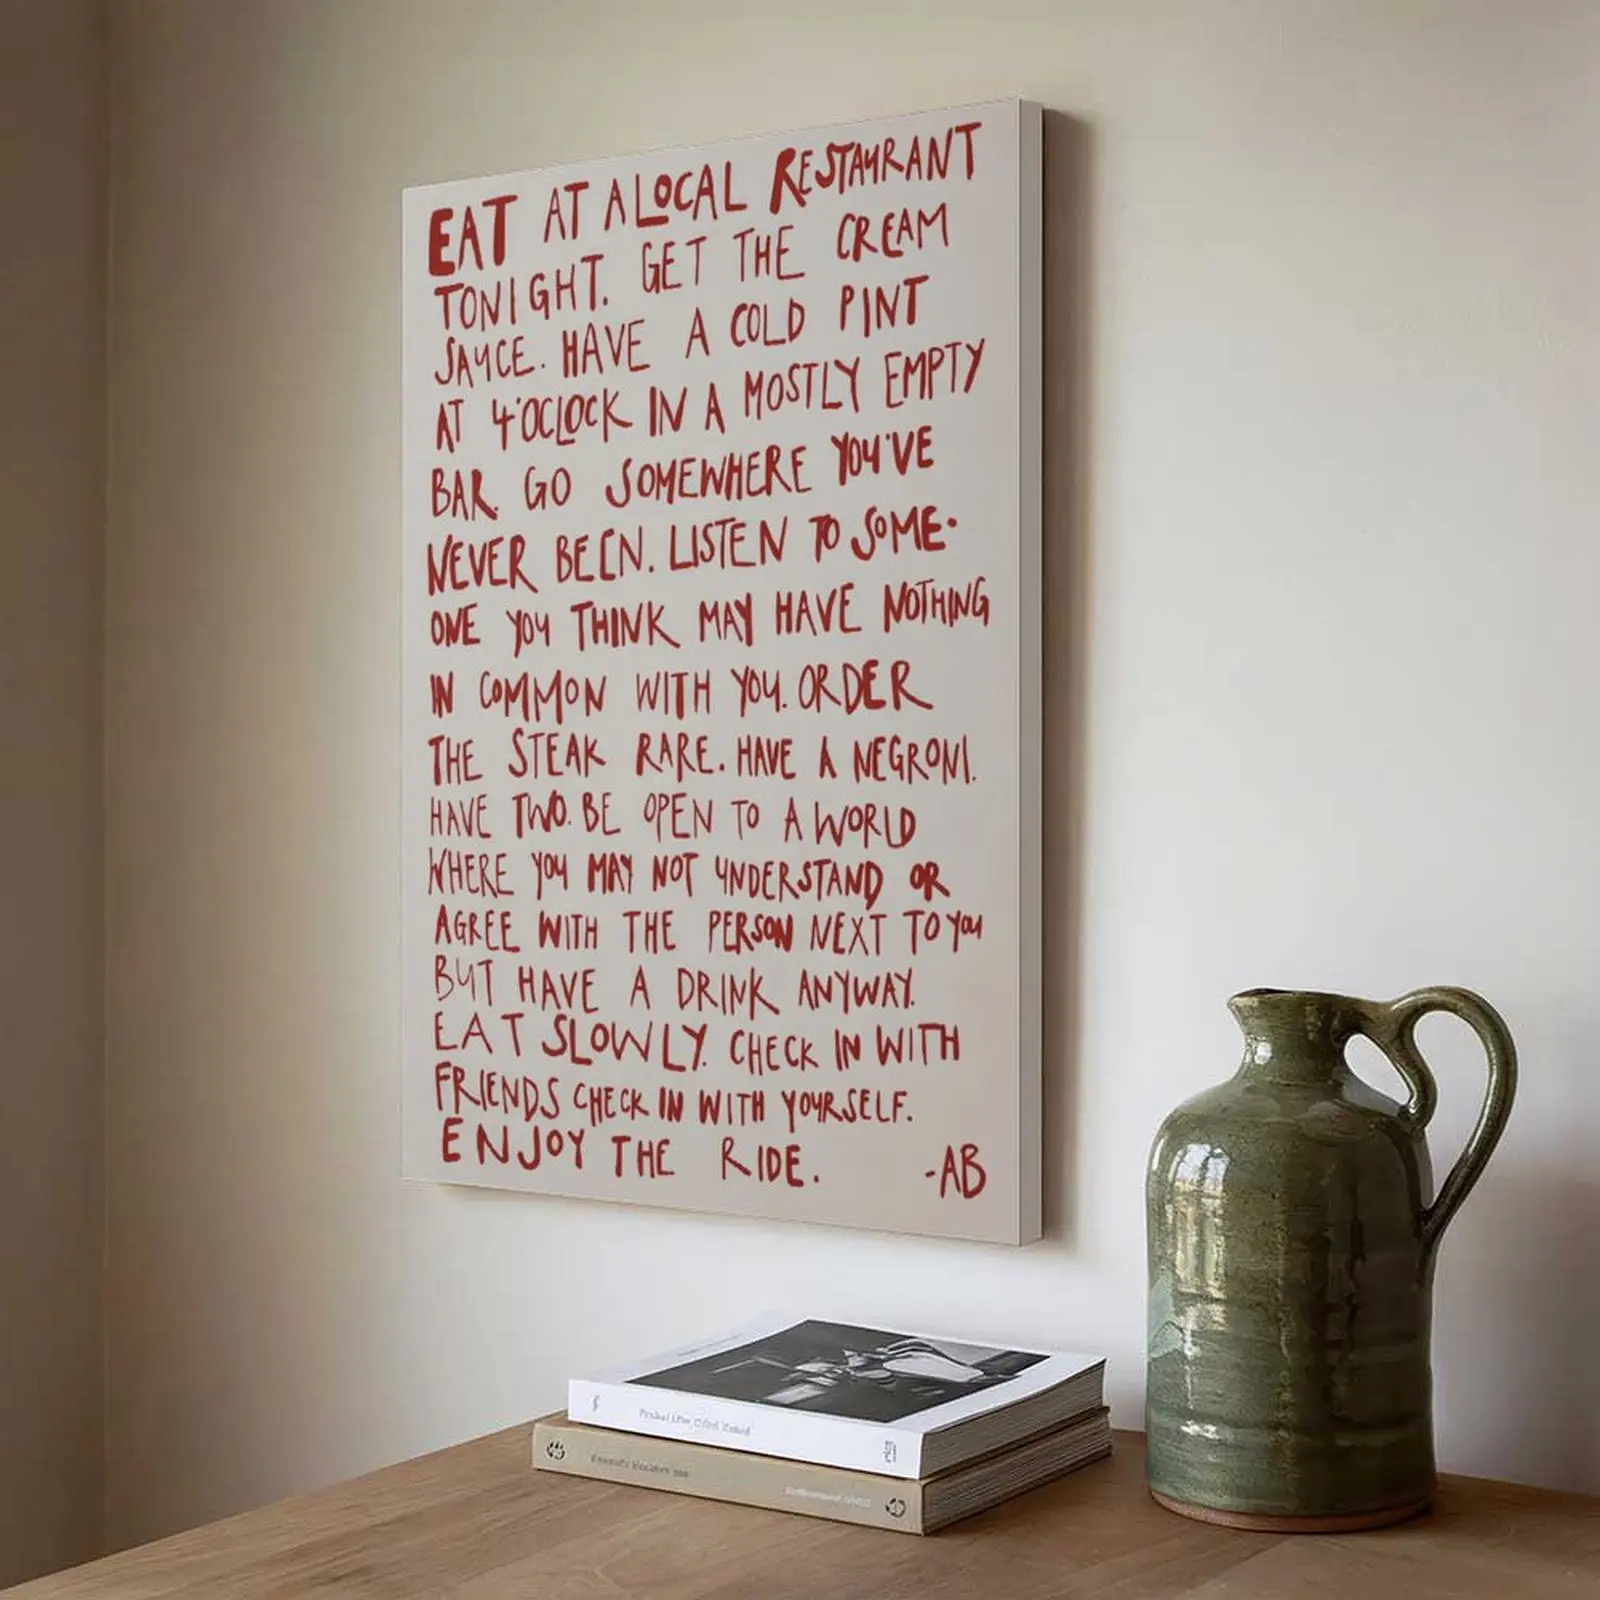 EAT AT A LOCAL RESTAURANT
TONIGHT. GET THE CREAM
SAUCE. HAVE A COLD PINT
AT 4'OCLOCK IN A MOSTLY EMPTY
BAR. GO SOMEWHERE YOU'VE
NEVER BEEN. LISTEN TO SOME-
ONE YOU THINK MAY HAVE NOTHING
IN COMMON WITH YOU. ORDER
THE STEAK RARE. HAVE A NEGRONI.
HAVE TWO. BE OPEN TO A WORLD
WHERE YOU MAY NOT UNDERSTAND OR
AGREE WITH THE PERSON NEXT TO YOU
BUT HAVE A DRINK ANYWAY.
EAT SLOWLY. CHECK IN WITH
FRIENDS CHECK IN WITH YOURSELF.
ENJOY THE RIDE. -AB